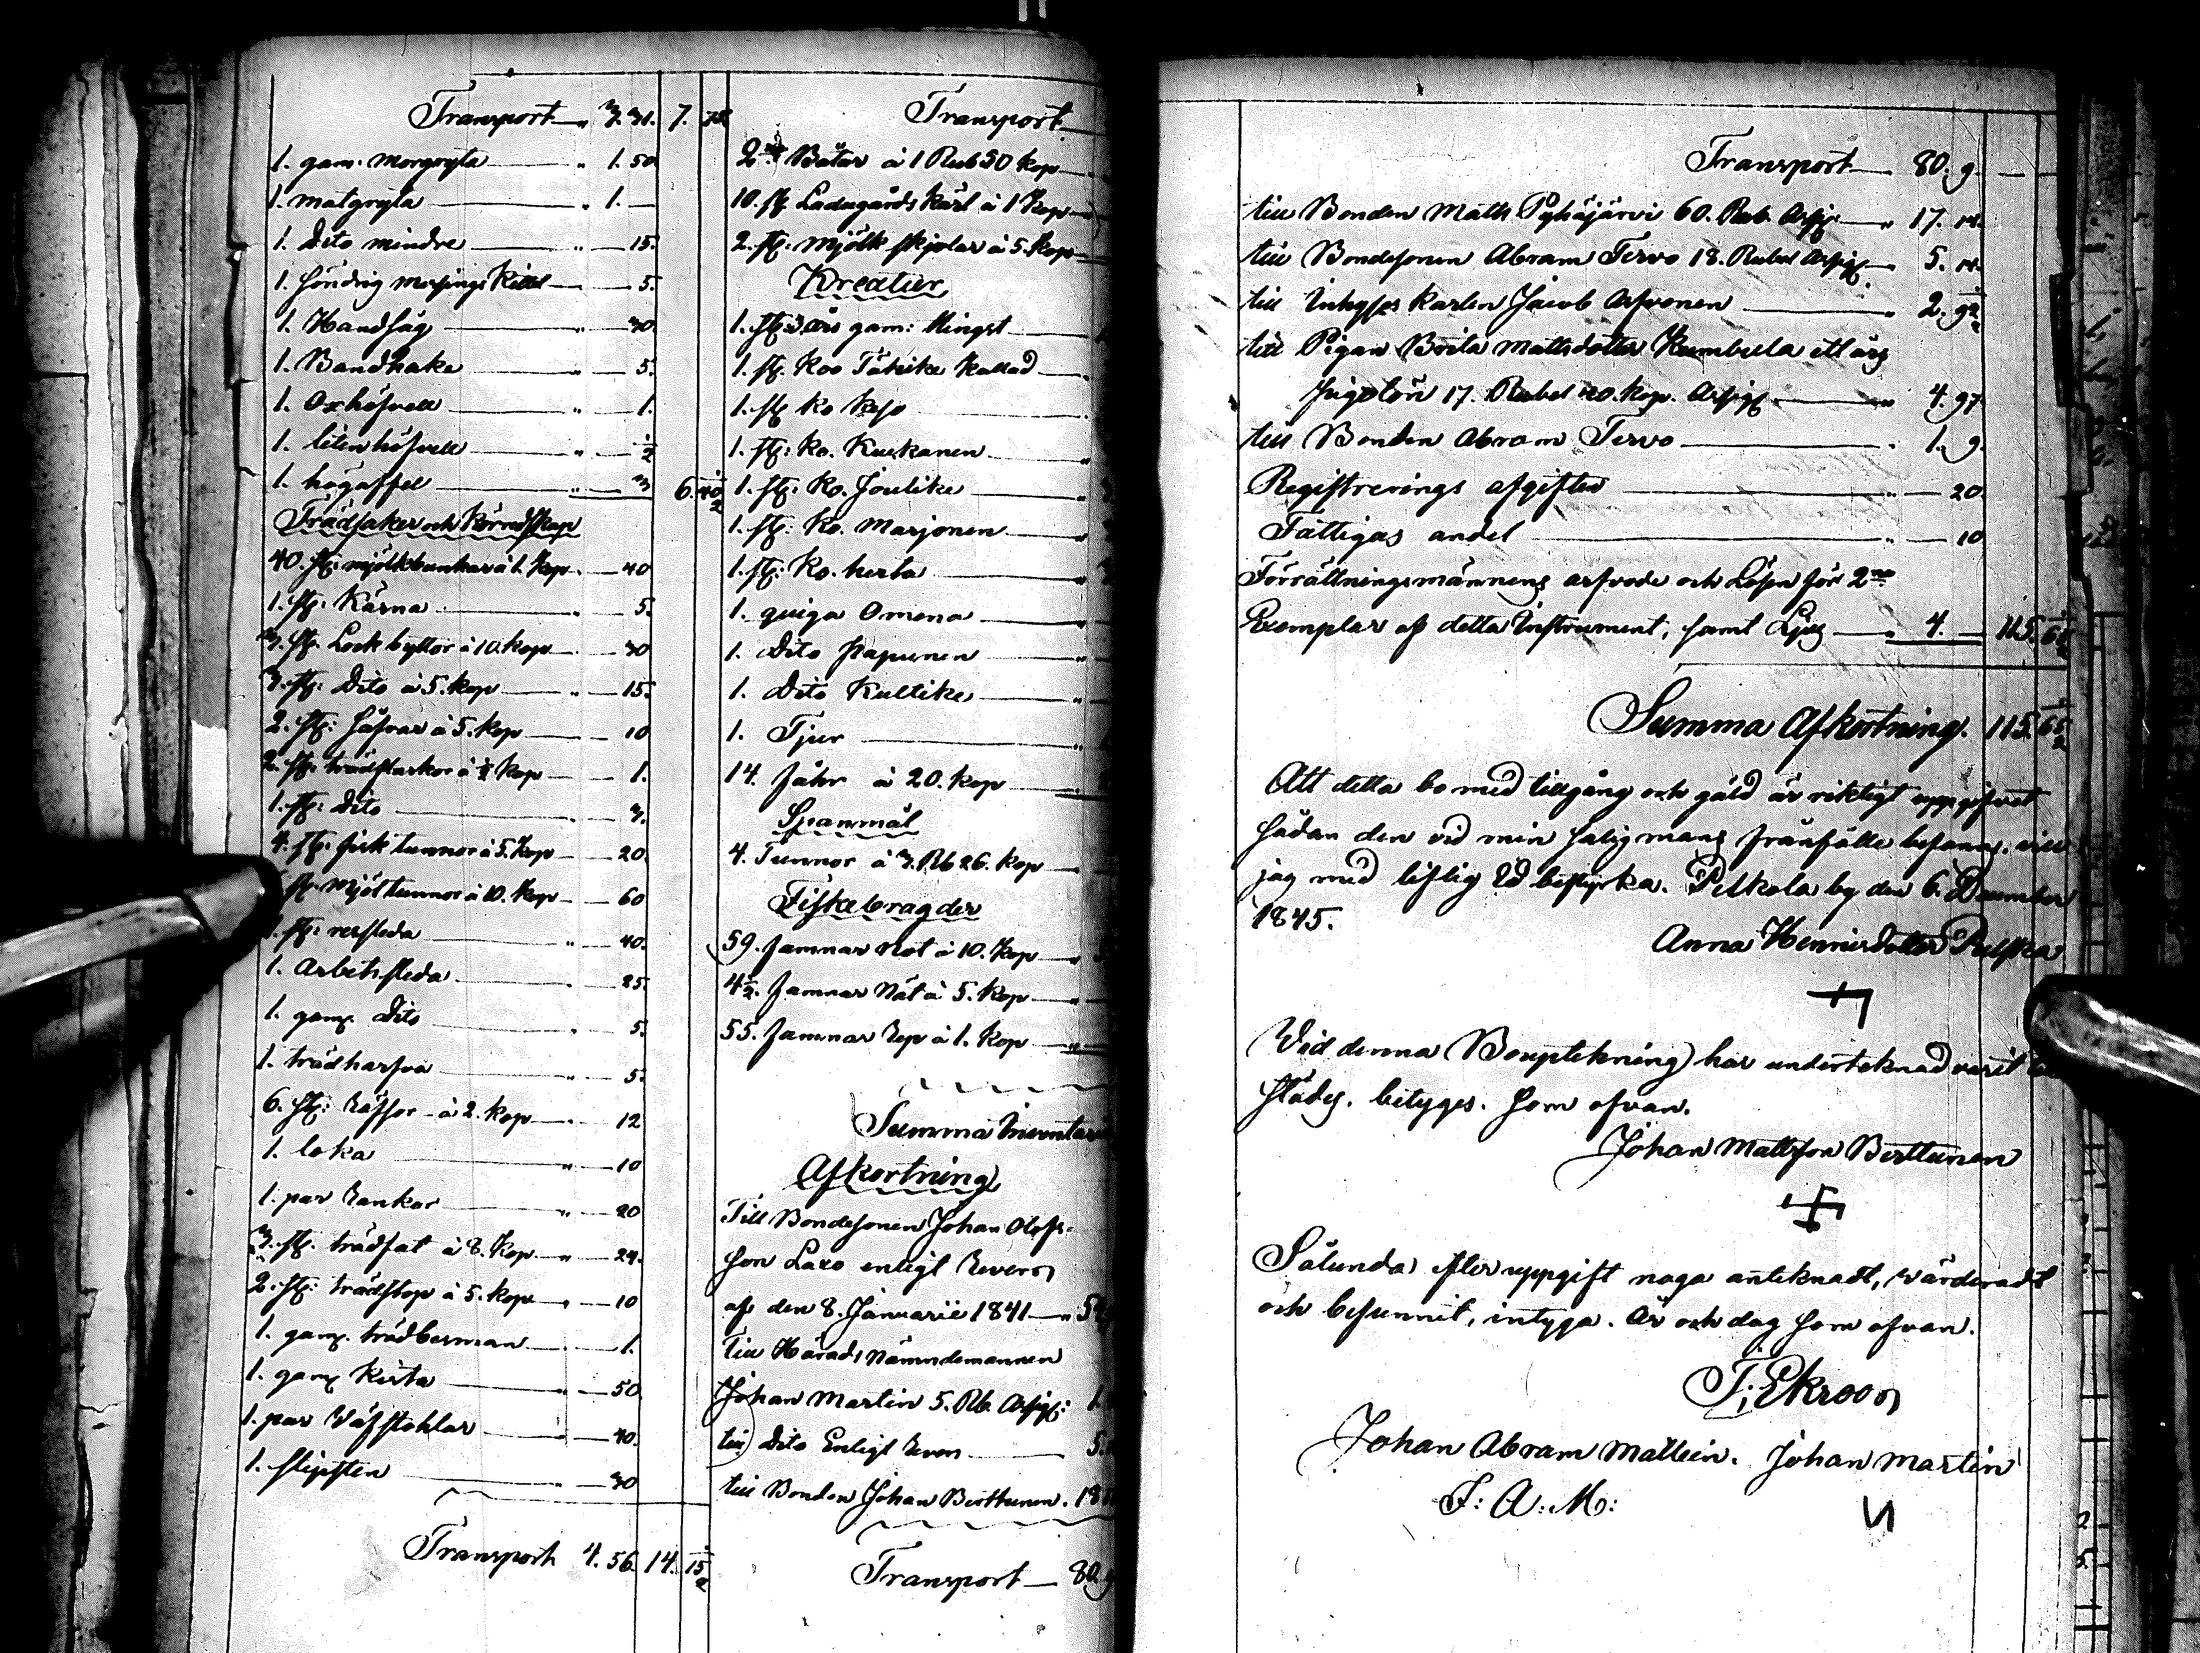 Transport 3. 31. 7. 75
1. gam: morgryta 1. 50
1. matgryta 1.
1. Dito mindre 15.
1. söndrig messings Kittel 5.
1. Handsåg 30
1. Bandhake 5.
1. Oxhöfvell 1.
1. liten höfvell 1/2
1. högaffel 3 6. 40 1/2
Trädsaker och Körredskap
40. st: mjölkbunkar à 1. kop 40
1. st: Kärna 5.
3. st: Lock byttor à 10. kop 30
3. st: Dito à 5. kop 15.
2. st: Såfvar à 5. kop 10
2. st: trädflaskor à 1/2 kop 1.
1. st: Dito 3.
4. st: fisk tunnor à 5. kop 20
st: mjöltunnor à 10. kop 60
1. st: resleda 40.
1. Arbetssleda 25.
1. gam. Dito 5.
1. trädharfva 5.
6. st: Räfsor à 2. kop 12
1. loka 10
1. par Rankor 20
3. st. trädfat à 8. kop 24.
2. st: trädstop à 5. kop 10
1. gam. trädbesman 1.
1. gam Kista 50
1. par Väfstohlar 40.
1. slipsten 30
Transport 4. 56. 14. 15 1/2
Transport
2ne Båtar à 1 Rub 50 kop
10. st Ladugårds Kärl à 1 kop
2. st: mjölk skjolar à 5. kop
Kreatur
1. st: 3 års gam: Hingst
1. st. Koo Tähike Kallad
1. st Ko Kejo
1. st: Ko. Kuckanen
1. st: Ko. Joulike
1. st: Ko. Marjonen
1. st: Ko. herta
1. quiga Omena
1. Dito Papunen
1. Dito Kultike
1. Tjur
14. fåhr à 20. kop
Spanmål
4. Tunnor à 3. Rb 26. kop
Fiskebragder
59. famnar Not à 10. kop
42. famnar Nät à 5. kop
55. famnar Rep à 1. kop
Summa Inventar
Afkortning
Till Bondesonen Johan Olofs-
son Laxo enligt Revers
af den 8. Januarii 1841 54
till Härads Nämndemannen
Johan Martin 5. Rb. Assig: 1.
till Dito Enligt Revers 5.
till Bonden Johan Berttunen. 18
Transport 80. 9
Transport 80. 9.
till Bonden Matts Pyhäjärvi 60. Rub. Assig 17. 14.
till Bondesonen Abram Tervo 18. Rubel Assig 5. 14.
till Inhyses Karlen Jacob Arvonen 2. 92
till Pigan Brita Mattsdotter Kumbula ett års
Pigelön 17. Rubel 20. kop. Assig 4. 97
till Bonden Abram Tervo 1. 9.
Registrerings afgifter 20
Fattigas andel 10
Förrättningsmännens arfvode och Lösen för 2ne
Exemplar af detta Instrument, samt Ljus 4. 115. 65 1/2
Summa Afkortning. 115. 65 1/2
Att detta bo med tillgång och gäld är riktigt uppgifvet
sådan den vid min salig mans frånfälle befans, vill
jag med liflig Ed bestyrka. Pelkola by den 6. December
1845.
Anna Henriksdotter Pelska
Vid denna Bouptekning har undertecknad varit till
städes. betyges. som ofvan.
Johan Mattsson Berttunen
Sålunda efter uppgift noga anteknadt, värderadt
och befunnit, intyga. År och dag som ofvan.
F: Ekroos
Johan Abram Mattein. Johan Martin
J: A: M: